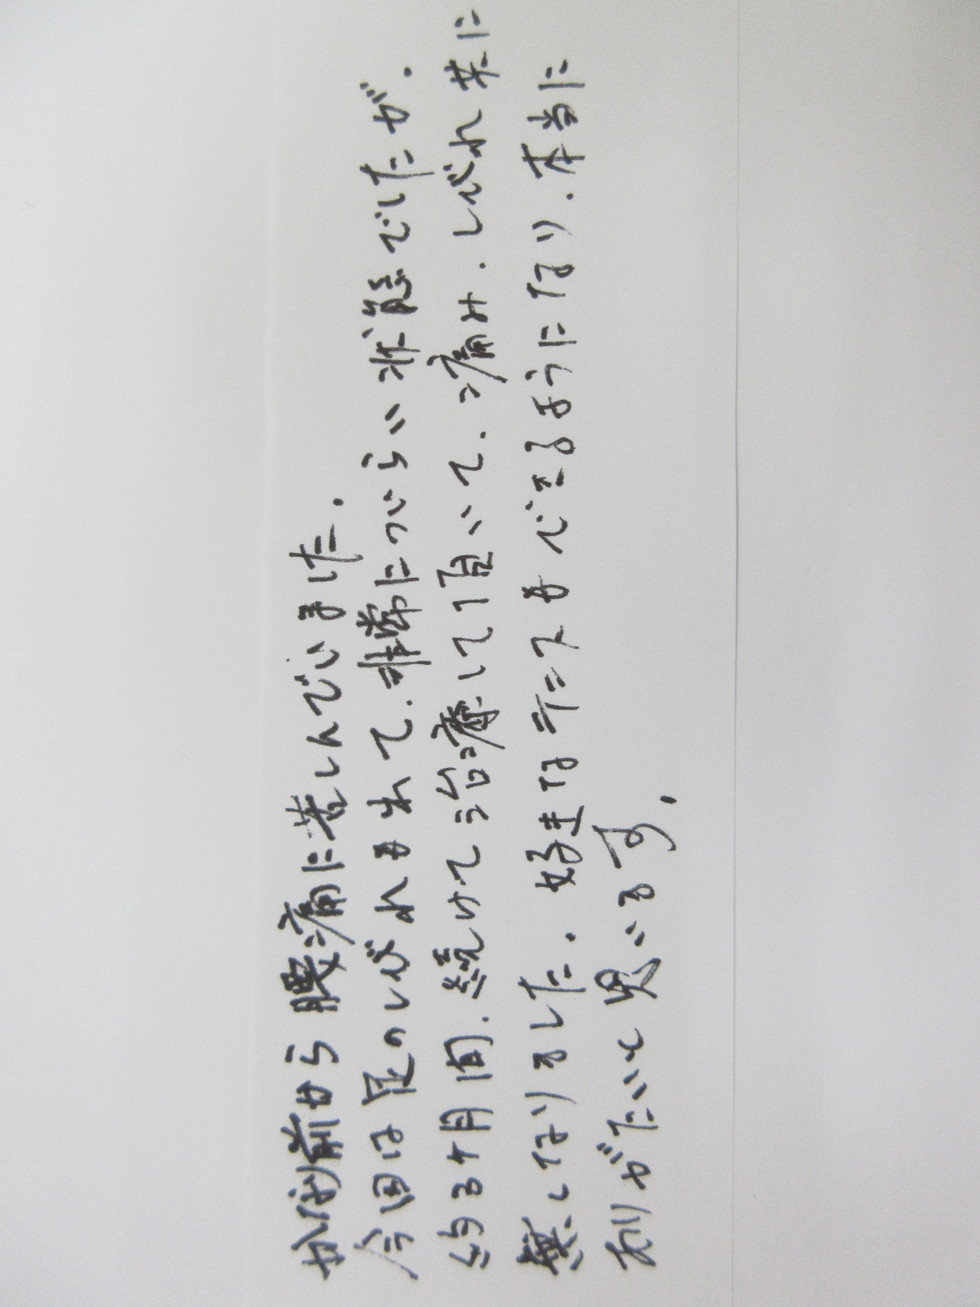 かなり前から腰痛に苦しんでいました.
今回は足のしびれもあって.非常につらい状態でしたが.
約3ヶ月間.続けて治療して頂いて.痛み.しびれ共に
無くなりました.好きなテニスもできるようになり.本当に
ありがたいと思います.